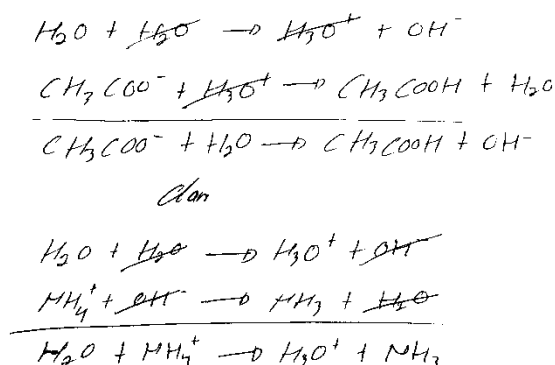 H₂O + H₂O → H₃O⁺ + OH⁻
CH₃COO⁻ + H₃O⁺ → CH₃COOH + H₂O
CH₃COO⁻ + H₂O → CH₃COOH + OH⁻
dan
H₂O + H₂O → H₃O⁺ + OH⁻
NH₄⁺ + OH⁻ → NH₃ + H₂O
H₂O + NH₄⁺ → H₃O⁺ + NH₃